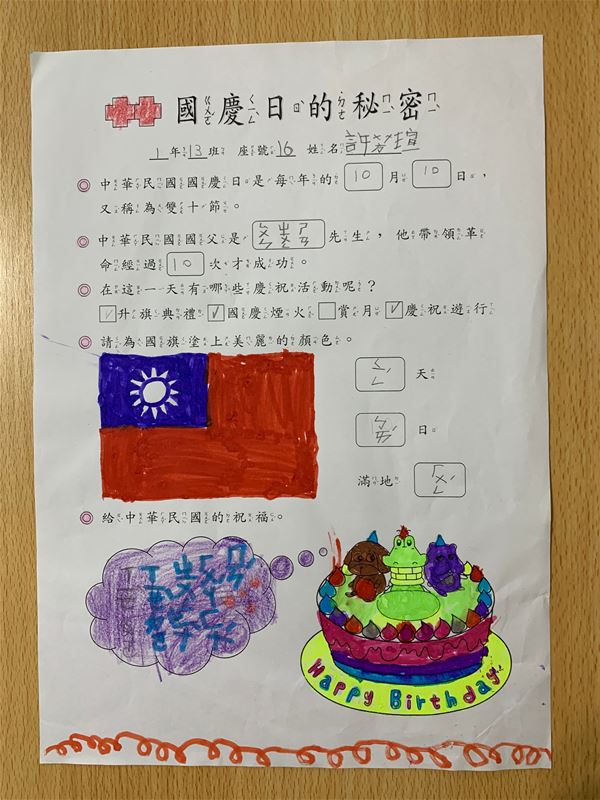 國慶日的秘密
1年13班 座號16 姓名許
中華民國國慶日是每年的10月10日，
又稱為雙十節。
中華民國國父是ㄙㄨㄣ ㄓㄨㄥ ㄕㄢ先生，他帶領革
命經過10次才成功。
在這一天有哪些慶祝活動呢？
☑升旗典禮☑國慶煙火□賞月☑慶祝遊行
請為國旗塗上美麗的顏色。
ㄑㄧㄥ天
ㄅㄞˊ日
滿地ㄏㄨㄥˊ
給中華民國的祝福。
Happy Birthday